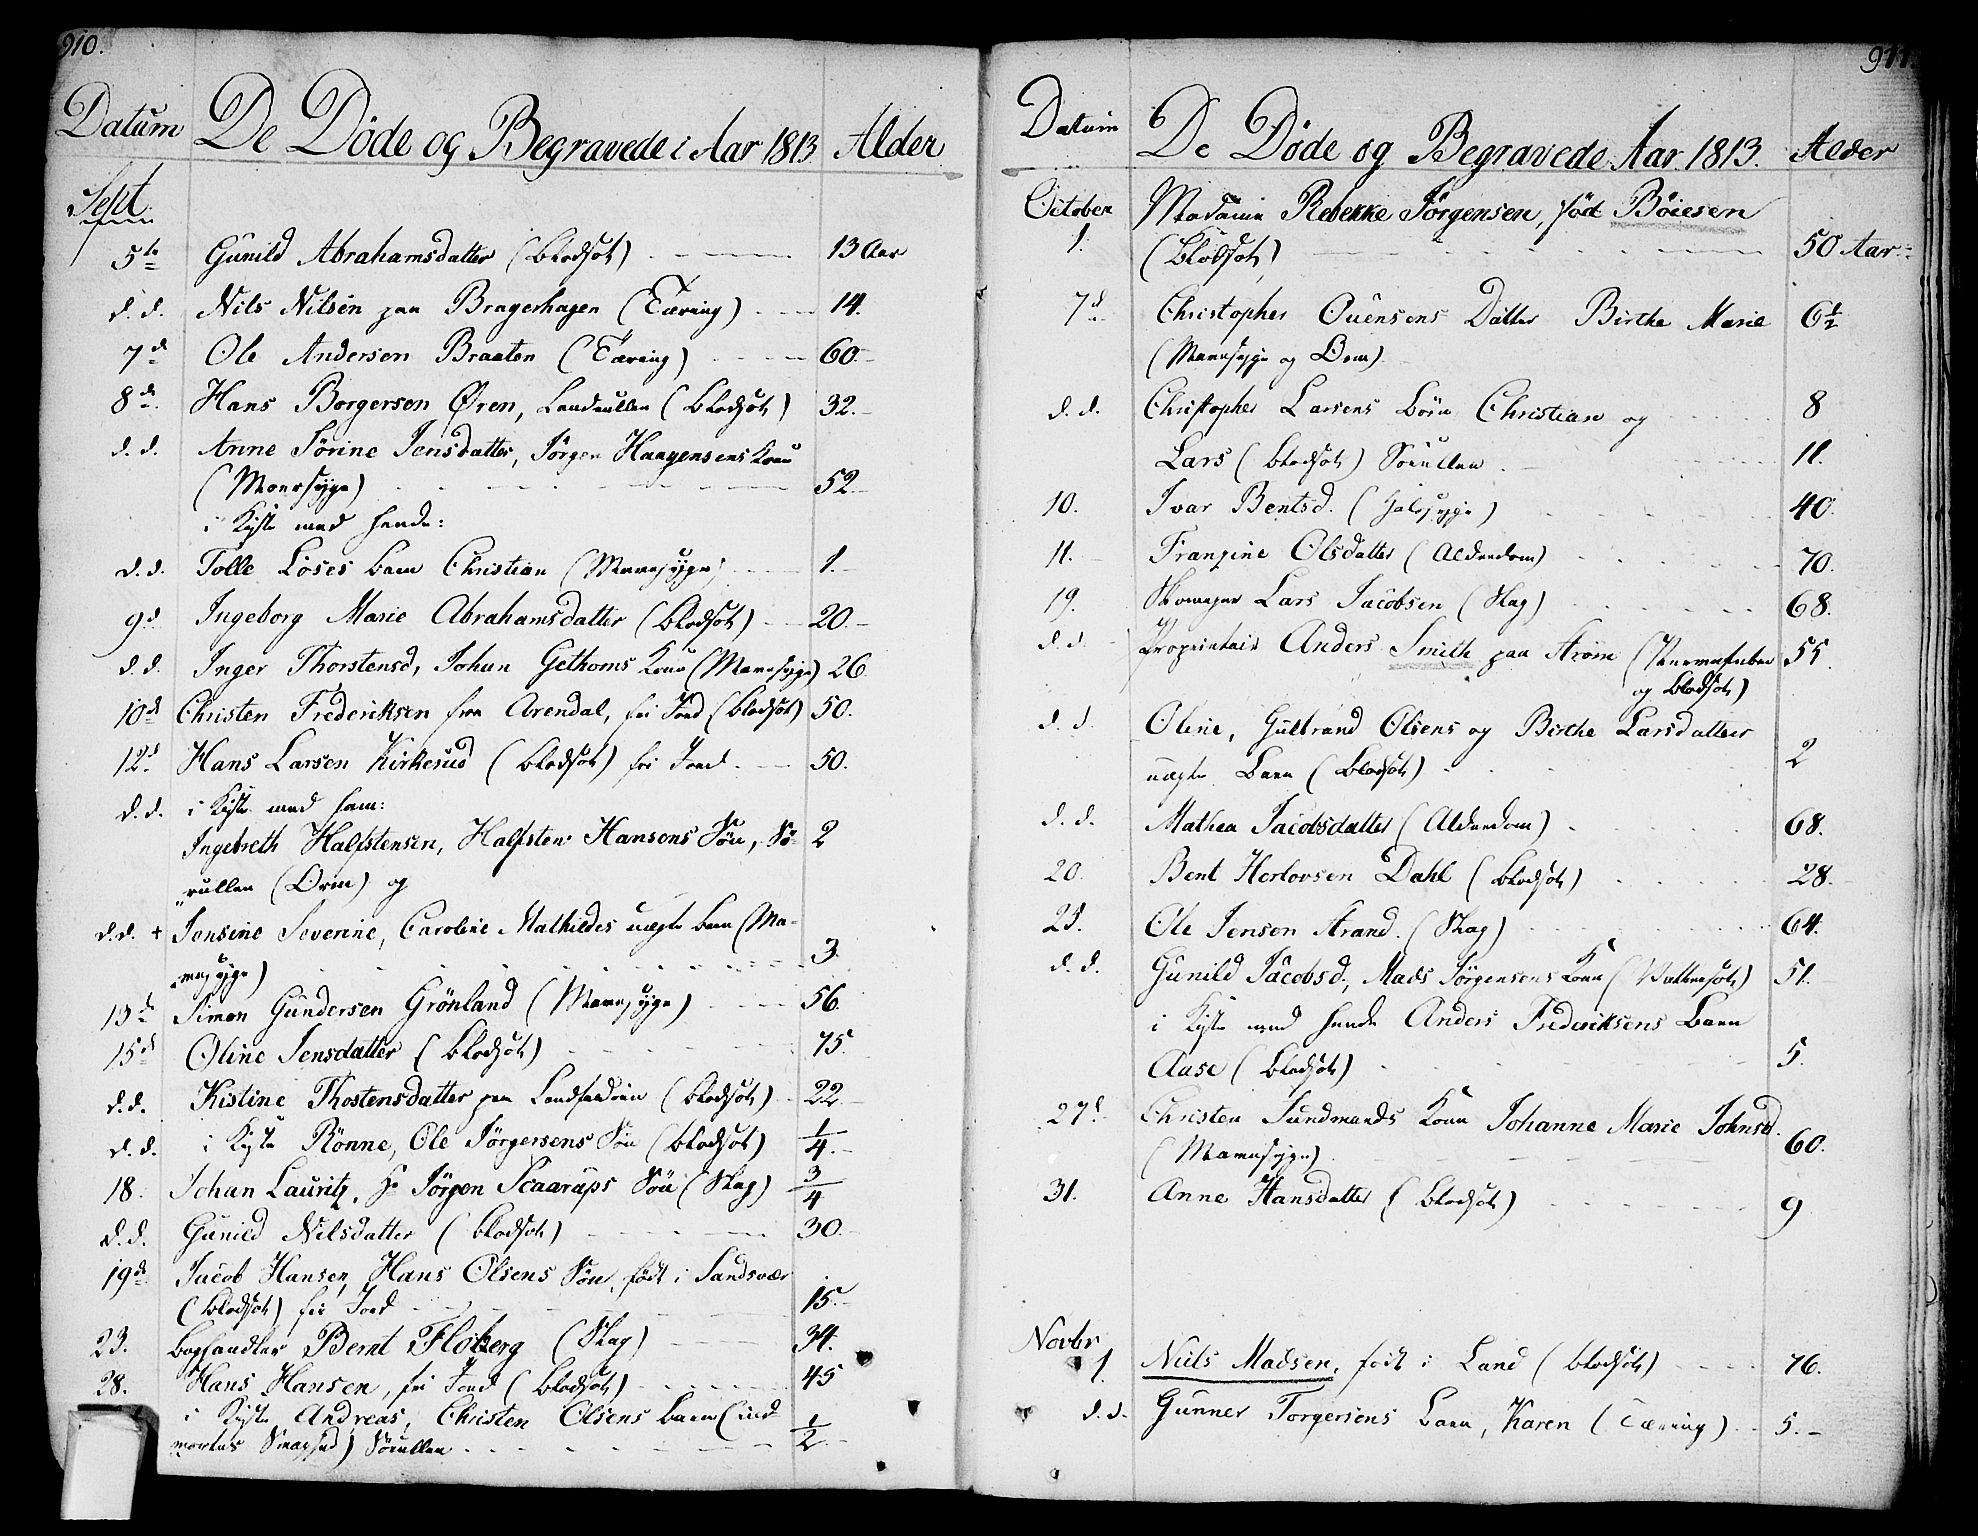 910.
Datum De Döde og Begravede i Aar 1813 Alder
Sept.
5te Gunild Abrahamsdatter (Blodsot) 13 Aar
d. d. Nils Nilsen paa Bragerhagen (Tæring) 14.
7d Ole Andersen Braaten (Tæring) 60.
8de Hans Borgersen Øren, Landrullen (Blodsot) 32.
d. d. Anne Sørine Jensdatter, Jørgen Haagensens Kone
(Mavesyge) 52
i Kiste med hende:
d. d. Tolle Loses barn Christian (Mavesyge) 1.
9d Ingeborg Marie Abrahamsdatter (Blodsot) 20.
d. d. Inger Thorstensd, Johan Gethoms Kone (Mavesyge) 26
10de Christen Frederiksen fra Arendal, fri Jord (Blodsot) 50.
12d Hans Larsen Kirkerud (Blodsot) fri Jord. 50.
d. d. i Kiste med ham:
Ingebreth Halfstensen, Halfsten Hansens Søn, Sø- 2
rullen (Orm) og
d. d. + Jensine Severine, Caroline Mathildes uægte barn (Ma-
vesyge) 3.
13de Simon Gundersen Grönland (Mavesyge) 56.
15de Oline Jensdatter (Blodsot) 75.
d. d. Kistine Thostensdatter paa (Blodsot) 22
d. d. i Kiste Rönne, Ole Jörgensens Søn (Blodsot) 1/4.
18. Johan Lauritz, Hr Jörgen Scaarups Søn (Slag) 3/4
d. d. Gunild Nilsdatter (Blodsot) 30.
19de Jacob Hansen, Hans Olsens Søn, født i Sandsvær
(Blodsot) fri Jord 15.
23. Boghandler Bernt Floberg (Slag) 34.
28. Hans Hansen, fri Jord (Blodsot) 45
i Kiste Andreas, Christen Olsens barn (ind
vortes Svaghed) Sörullen 1/2
911.
Datum De Döde og Begravede Aar 1813. Alder
October Madame Rebekke Jörgensen, född Böiesen
1. (Blodsot) 50 Aar
7d Christopher Ouensens Datter Birthe Marie 6 1/2
(Mavesyge og Orm)
d. d. Christopher Larsens börn Christian og 8
Lars (Blodsot) Sörullen 11.
10. Ivar Bentsd. (Halssyge) 40.
11. Franzine Olsdatter (Alderdom) 70.
19. Skomager Lars Jacobsen (Slag) 68.
d. d. Proprietair Anders Smith paa Arom 55.
og Blodsot)
d. d. Oline, Gulbrand Olsens og Birthe Larsdatters
uægte Barn (Blodsot) 2
d. d. Mathea Jacobsdatter (Alderdom) 68.
20. Bent Herlovsen Dahl (Blodsot) 28.
25. Ole Jensen Strand. (Slag) 64.
d. d. Gunild Jacobsd., Mads Jörgensens Kone (Vattersot) 51.
i Kiste med hende Anders Frederiksens Barn
Aase (Blodsot) 5.
27d Christen Sundmands Kone Johanne Marie Johnsd.
(Mavesyge) 60.
31. Anne Hansdatter (Blodsot) 9
Novbr
1. Niels Madsen, född i Land (Blodsot) 76.
d. d. Gunner Torgersens Barn, Karen (Tæring) 5.